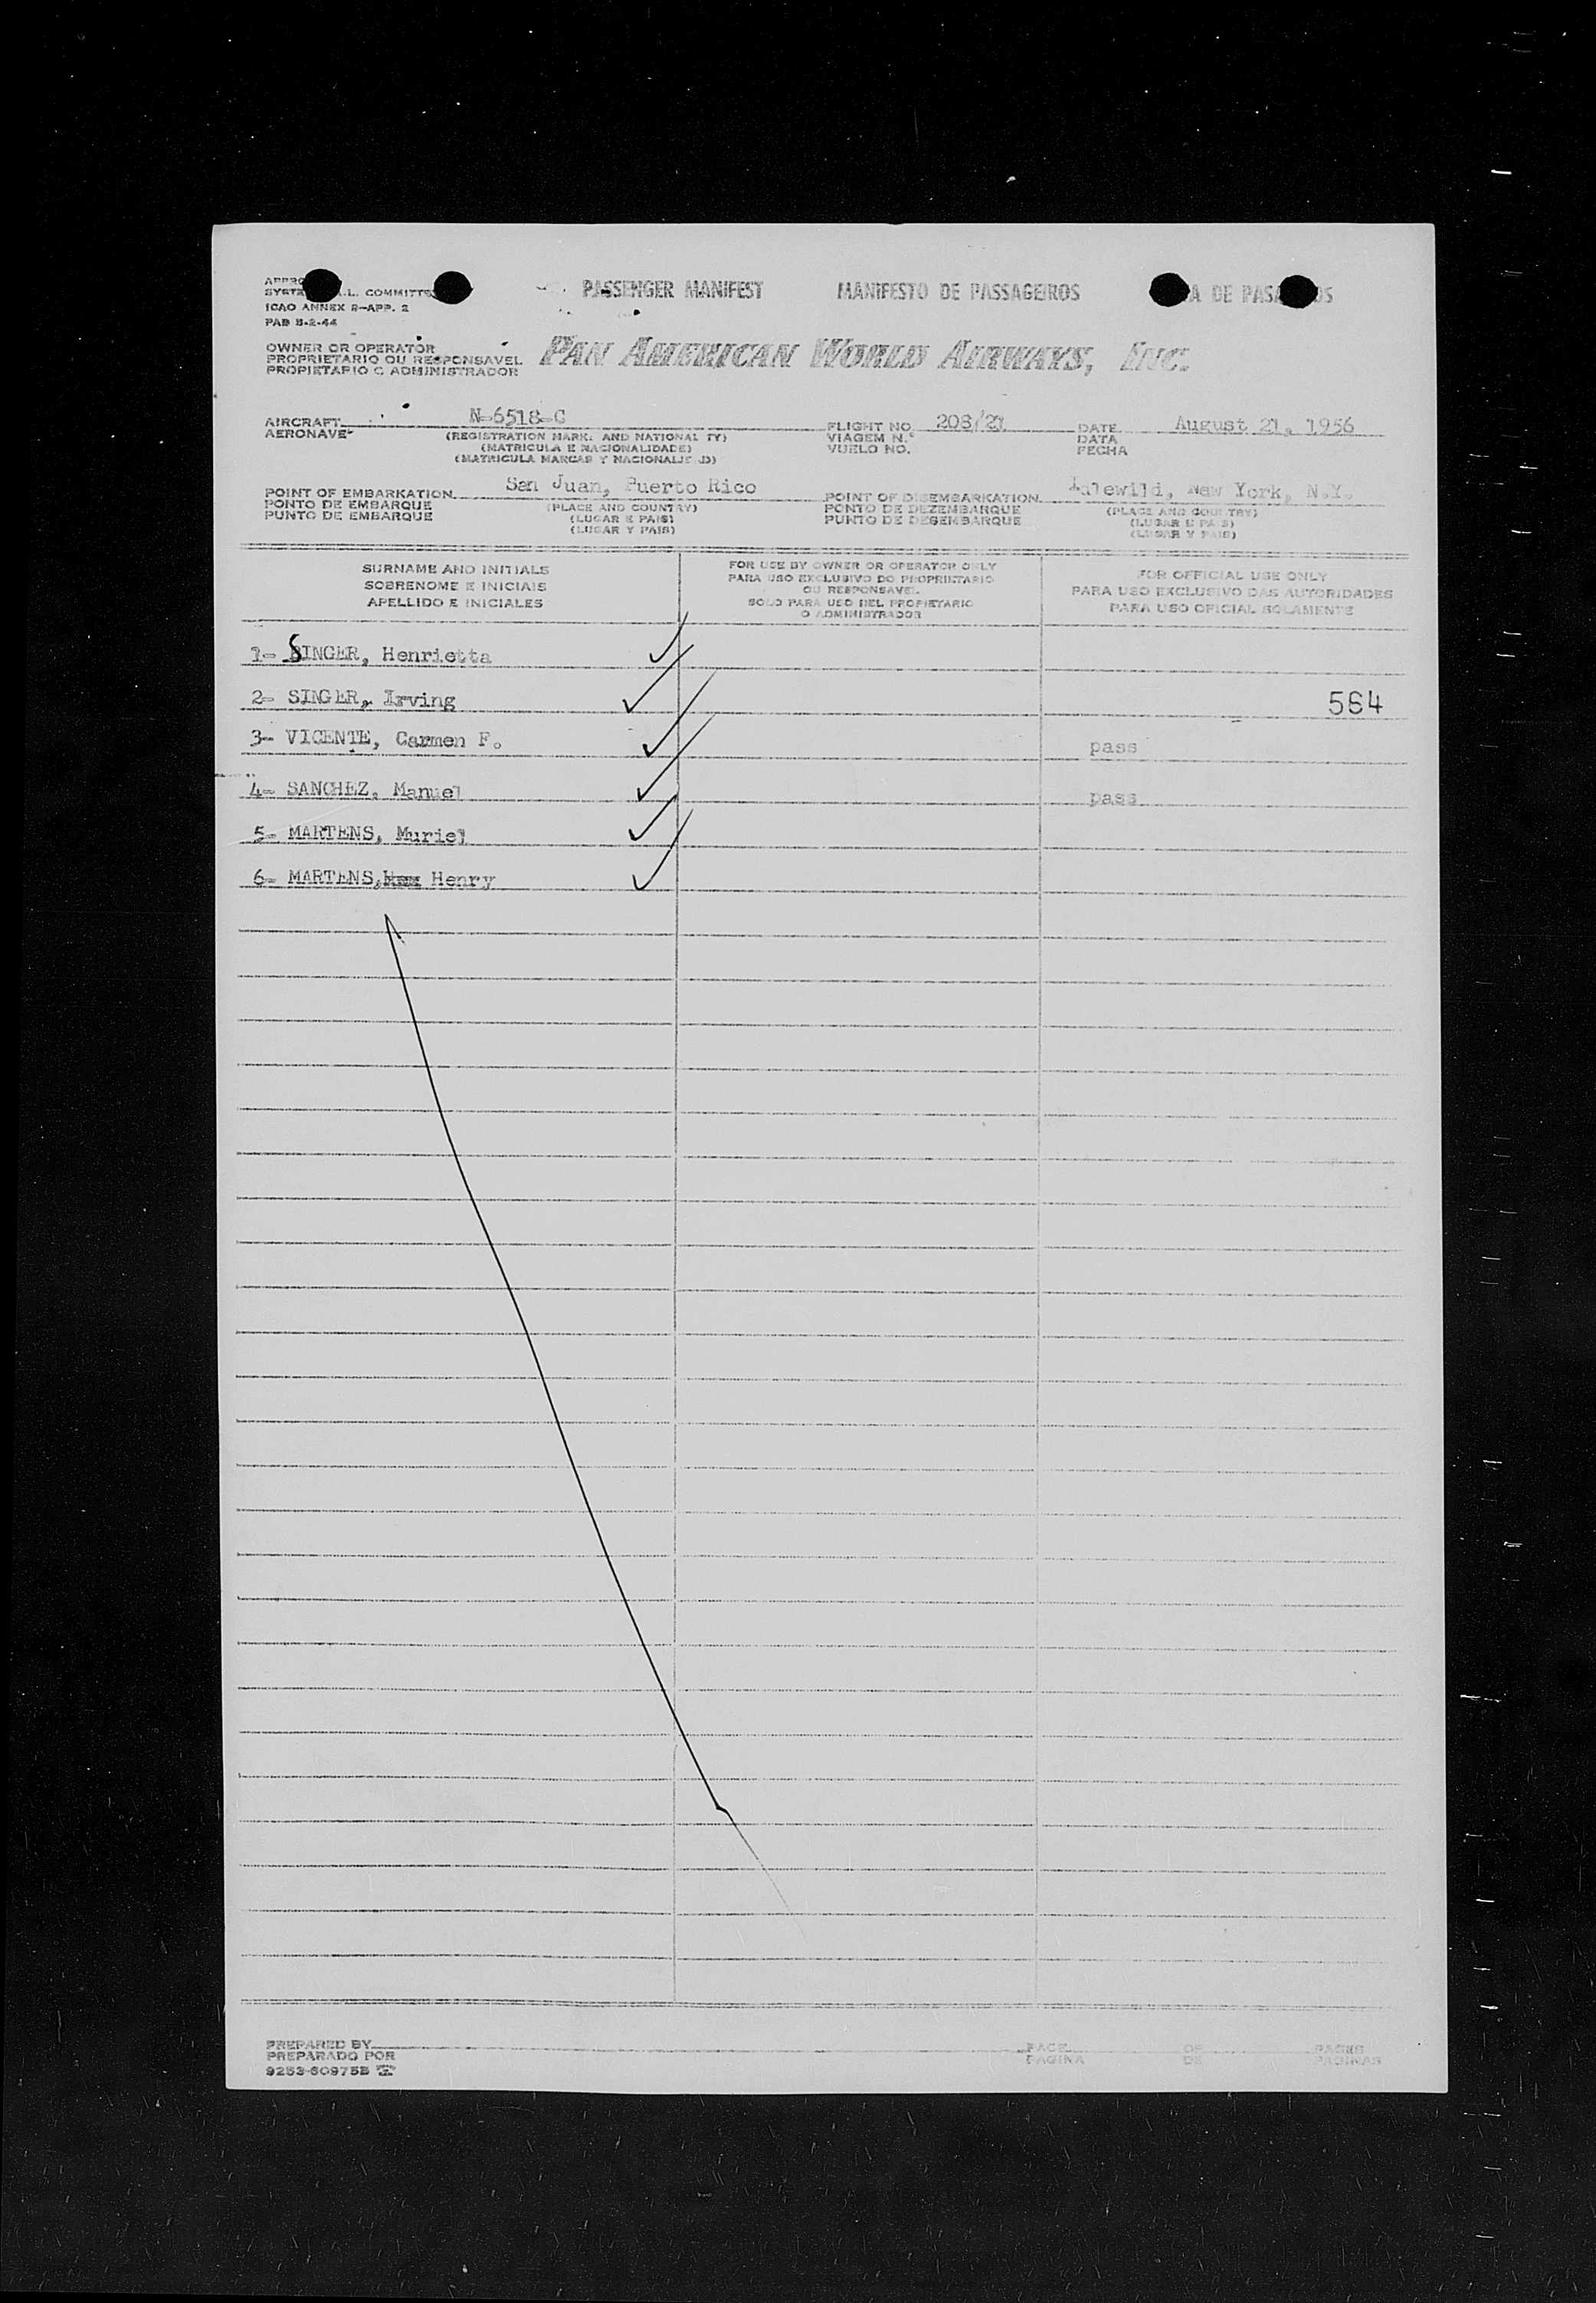 PASSENGER MANIFEST MANIFESTO DE PASSAGEIROS DE
COMMITTEE
ICAO ANNEX 9-APP. 2
PAB 8-2-44
OWNER OR OPERATOR
PROPRIETARIO OU RESPONSAVEL
PROPIETARIO O ADMINISTRADOR
PAN AMERICAN WORLD AIRWAYS, INC.
AIRCRAFT N-6518-C FLIGHT NO. 208/21 DATE August 21, 1956
AERONAVE (REGISTRATION MARKS AND NATIONALITY) VIAGEM N.º DATA
(MATRICULA E NACIONALIDADE) VUELO NO. FECHA
(MATRICULA MARCAS Y NACIONALIDAD)
POINT OF EMBARKATION San Juan, Puerto Rico POINT OF DISEMBARKATION Idlewild, New York, N.Y.
PONTO DE EMBARQUE (PLACE AND COUNTRY) PONTO DE DEZEMBARQUE (PLACE AND COUNTRY)
PUNTO DE EMBARQUE (LUGAR E PAIS) PUNTO DE DESEMBARQUE (LUGAR E PAIS)
(LUGAR Y PAIS) (LUGAR Y PAIS)
SURNAME AND INITIALS
SOBRENOME E INICIAIS
APELLIDO E INICIALES
FOR USE BY OWNER OR OPERATOR ONLY
PARA USO EXCLUSIVO DO PROPRIETARIO
OU RESPONSAVEL
SOLO PARA USO DEL PROPIETARIO
O ADMINISTRADOR
FOR OFFICIAL USE ONLY
PARA USO EXCLUSIVO DAS AUTORIDADES
PARA USO OFICIAL SOLAMENTE
1- SINGER, Henrietta
2- SINGER, Irving 564
3- VICENTE, Carmen F. pass
4- SANCHEZ, Manuel pass
5- MARTENS, Muriel
6- MARTENS, Henry
PREPARED BY PAGE OF PAGES
PREPARADO POR PAGINA DE PAGINAS
9253-60975B